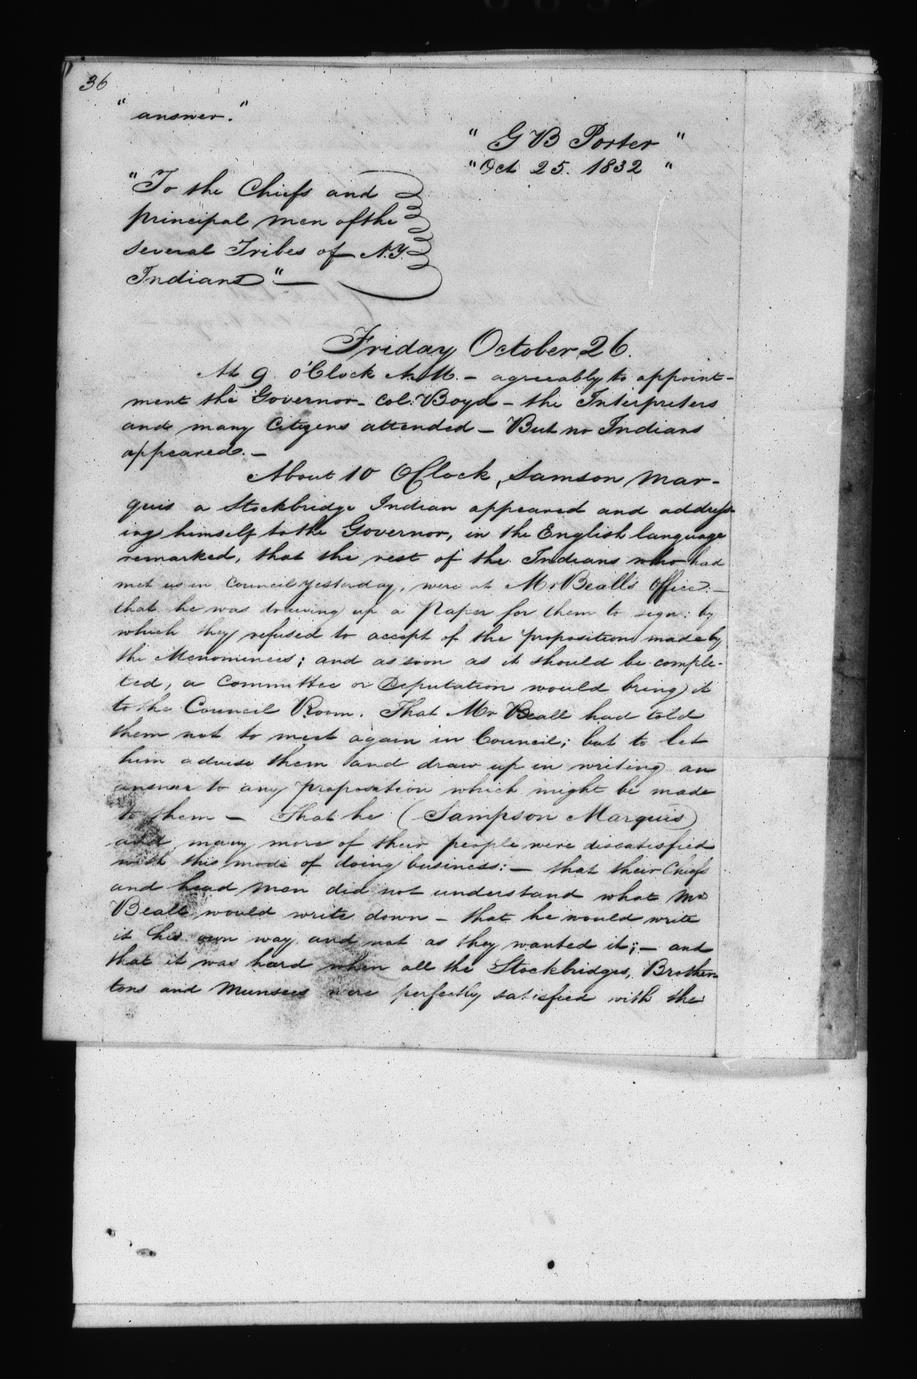 36
"answer."
"G B Porter"
"Oct 25. 1832"
"To the Chiefs and
principal men of the
several Tribes of N.Y.
Indians"—
Friday October 26.
At 9 o'Clock A.M. – agreeably to appoint-
ment the Governor – Col. Boyd – the Interpreters
and many Citizens attended – But no Indians
appeared. –
About 10 OClock, Samson Mar-
quis a Stockbridge Indian appeared and address-
ing himself to the Governor, in the English language
remarked, that the rest of the Indians who had
met us in Council yesterday, were at Mr Beall's Office: –
that he was drawing up a Paper for them to sign: by
which they refused to accept of the proposition made by
the Menominees; and as soon as it should be comple-
ted, a Committee or Deputation would bring it
to the Council Room. That Mr Beall had told
them not to meet again in Council; but to let
him advise them and draw up in writing an
answer to any proposition which might be made
to them – That he (Sampson Marquis)
and many more of their people were dissatisfied
with this mode of doing business: – that their Chiefs
and head men did not understand what Mr
Beall would write down – that he would write
it his own way and not as they wanted it; – and
that it was hard when all the Stockbridges, Brother-
tons and Munsees were perfectly satisfied with the